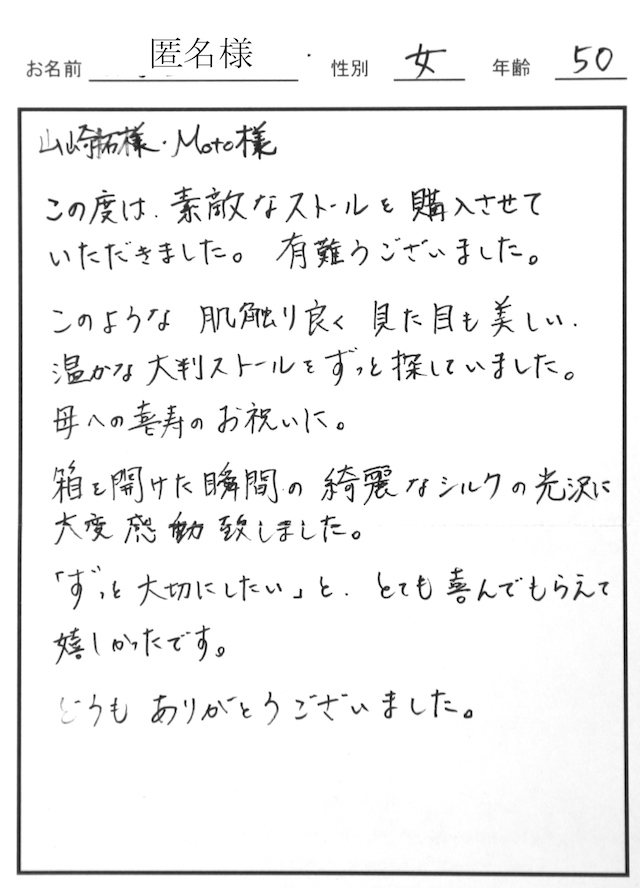 お名前 匿名様 性別 女 年齢 50
山崎拓様・Moto様
この度は、素敵なストールを購入させて
いただきました。 有難うございました。
このような 肌触り良く 見た目も美しい、
温かな大判ストールをずっと探していました。
母への喜寿のお祝いに。
箱を開けた瞬間の綺麗なシルクの光沢に
大変感動致しました。
「ずっと大切にしたい」と、とても喜んでもらえて
嬉しかったです。
どうもありがとうございました。